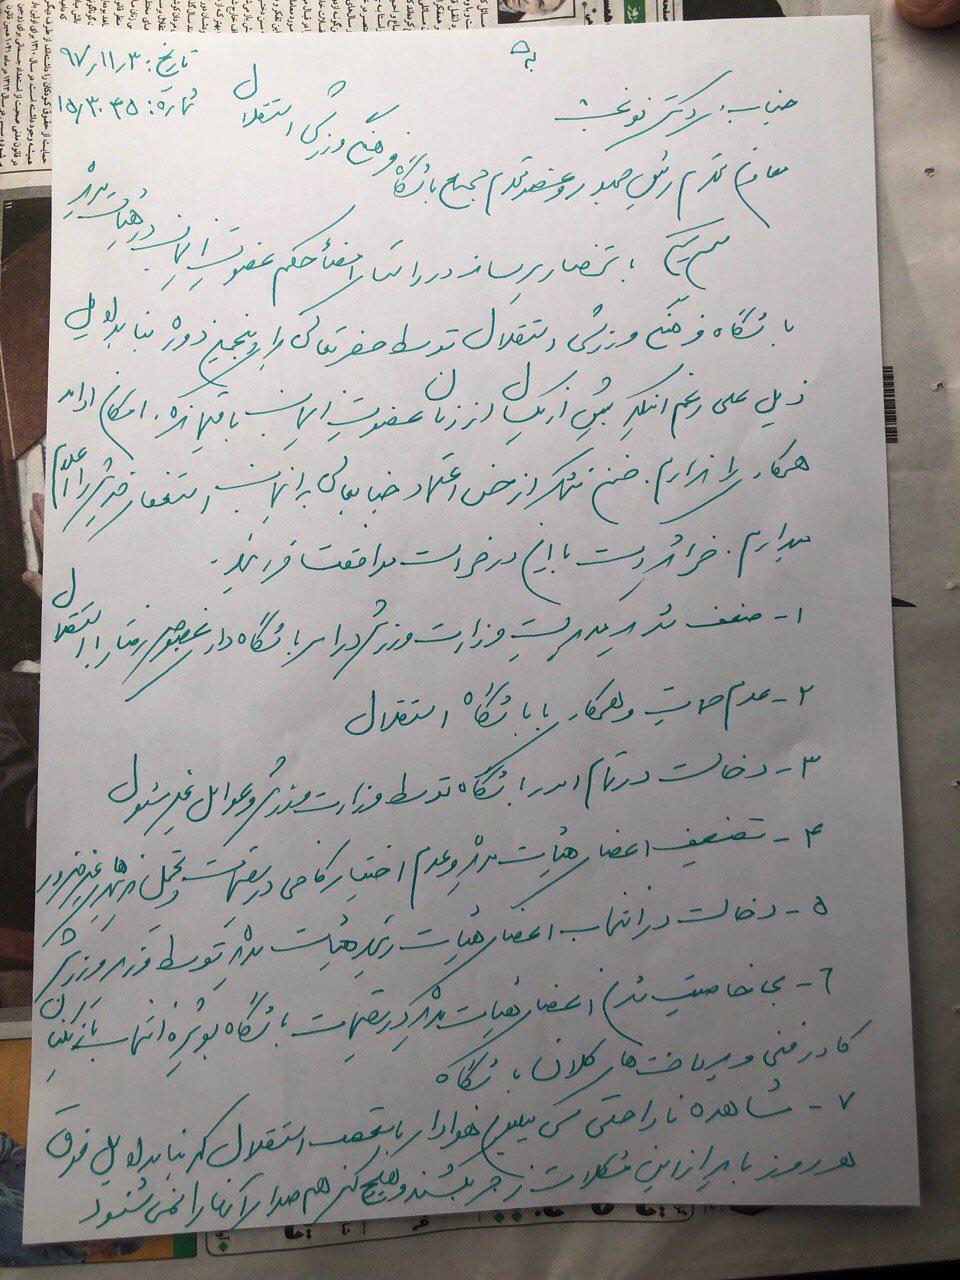 تاریخ: ۹۷/۱۱/۳
شماره: ۱۵/۳۰۴۵
جناب سردکتر نوبخت
معاون محترم رئیس جمهور و عضو محترم مجمع باشگاه فرهنگی ورزشی استقلال
سلام علیکم با استحضار میرساند در راستای امضاء حکم عضویت اینجانب در هیأت مدیره
باشگاه فرهنگی ورزشی استقلال توسط حضرتعالی برای پنجمین دوره بنا به دلایل
ذیل علی رغم اینکه بیش از یکسال از زمان عضویت اینجانب باقیمانده، امکان ادامه
همکاری را ندارم. ضمن تشکر از حسن اعتماد جنابعالی به اینجانب استعفای خویش را اعلام
میدارم. خواهشمند است با این درخواست موافقت فرمائید.
۱- ضعف شدید مدیریت وزارت ورزش در امر باشگاه داری بخصوص رفتار با استقلال
۲- عدم حمایت و همکاری با باشگاه استقلال
۳- دخالت در تمام امور باشگاه توسط وزارت ورزش و عوامل غیر مسئول
۴- تضعیف اعضای هیأت مدیره و عدم اختیار کافی در تصمیمات و تحمیل هزینه های غیر ضرور
۵- دخالت در انتخاب اعضای هیأت رئیسه هیأت مدیره توسط وزیر ورزش
۶- بی خاصیت شدن اعضای هیأت مدیره در تصمیمات باشگاه بویژه انتخاب بازیکنان
کادر فنی و پرداخت های کلان باشگاه
۷- مشاهده ناراحتی سی میلیون هوادار با تعصب استقلال که بنا به دلایل فوق
هر روز باید از این مشکلات زجر بکشند و هیچ کس هم صدای آنها را نمی شنود